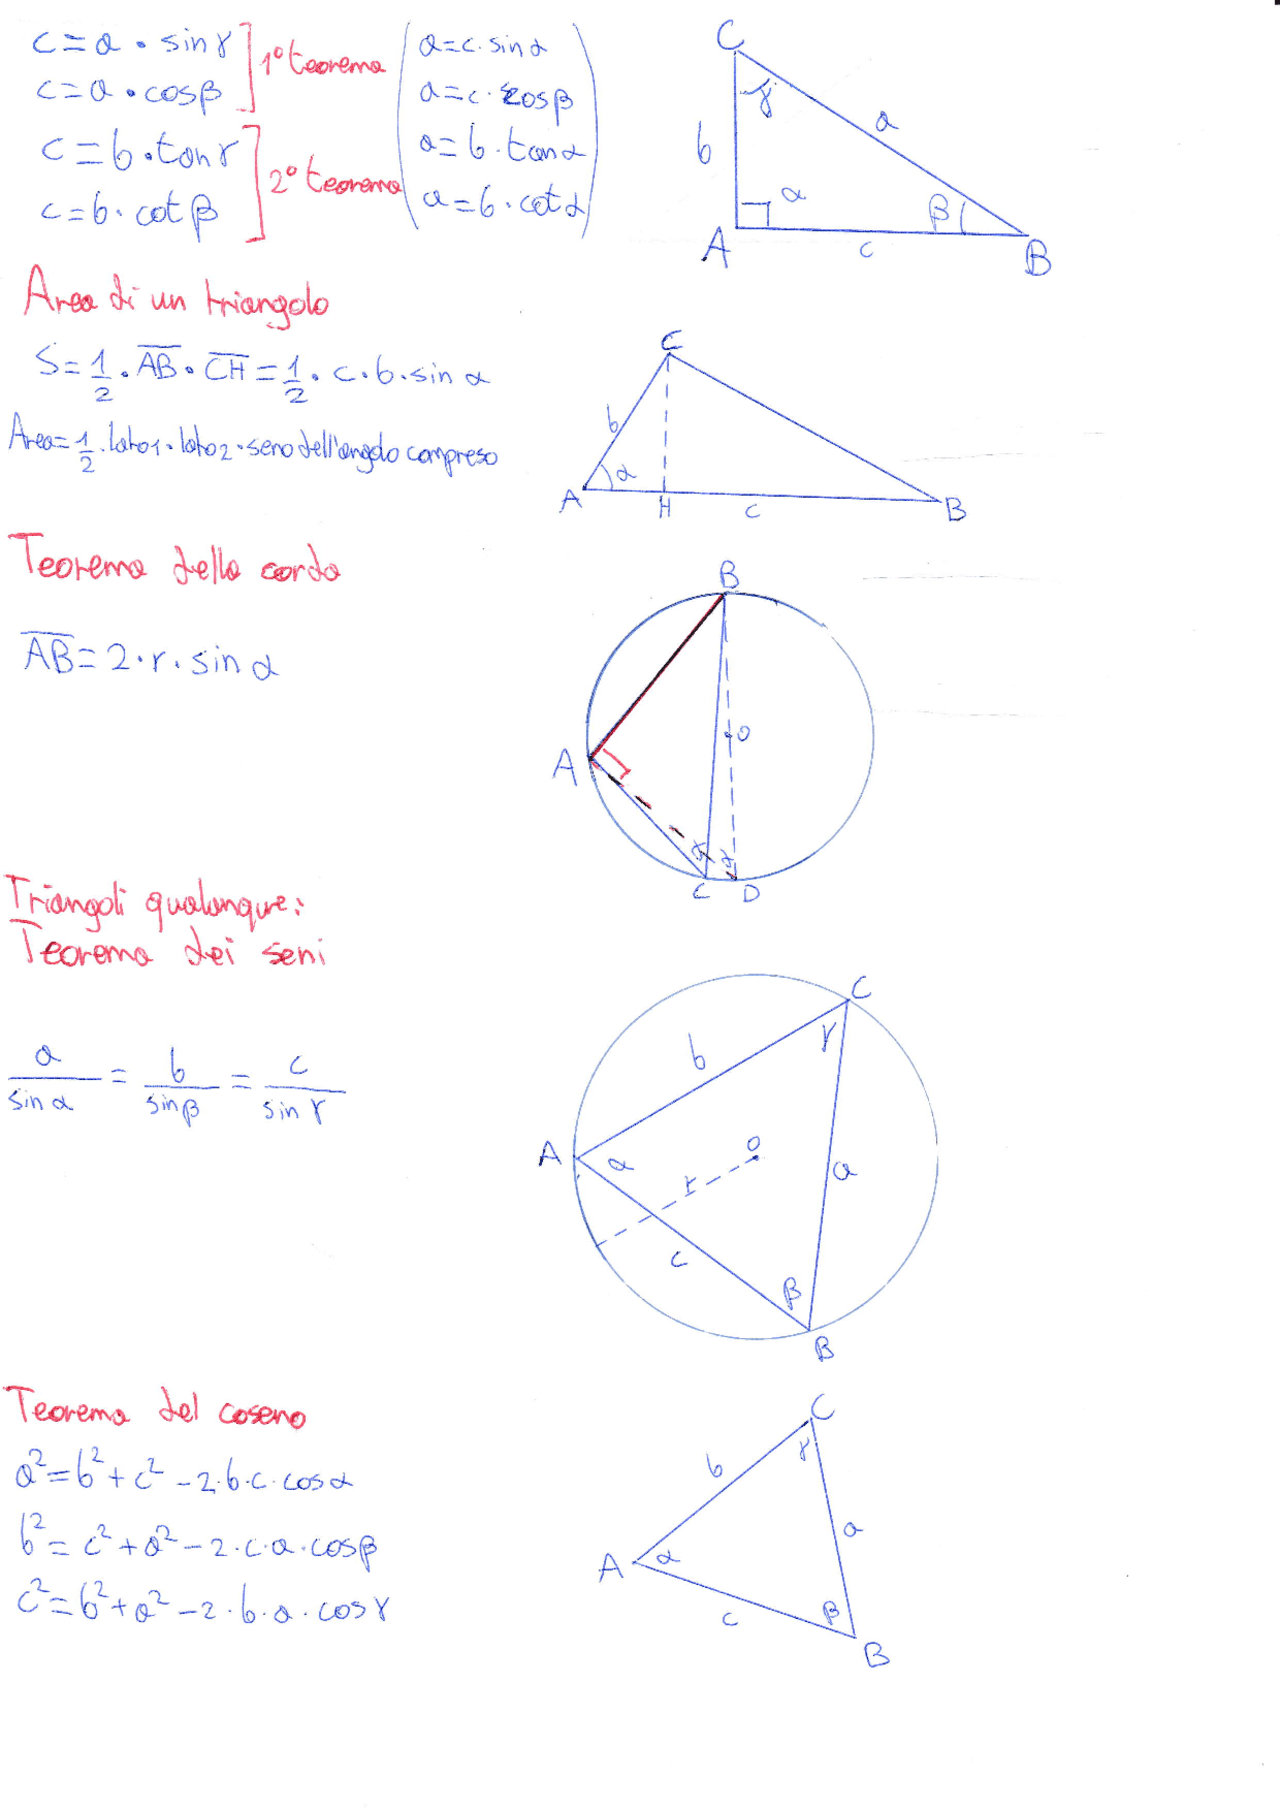 c = a · sin γ ] 1° teorema ( a = c · sin α
c = a · cos β a = c · cos β
c = b · tan γ ] 2° teorema a = b · tan α
c = b · cot β a = b · cot α )
C
γ
a
b
α
β
A
c
B
Area di un triangolo
S = 1/2 · A̅B̅ · C̅H̅ = 1/2 · c · b · sin α
Area = 1/2 · lato1 · lato2 · seno dell'angolo compreso
C
b
α
A
H
c
B
Teorema della corda
A̅B̅ = 2 · r · sin α
B
O
A
C D
Triangoli qualunque:
Teorema dei seni
a/sin α = b/sin β = c/sin γ
C
b
γ
O
A
α
r
a
c
β
B
Teorema del coseno
a² = b² + c² - 2 · b · c · cos α
b² = c² + a² - 2 · c · a · cos β
c² = b² + a² - 2 · b · a · cos γ
C
γ
b
a
A
α
c
β
B